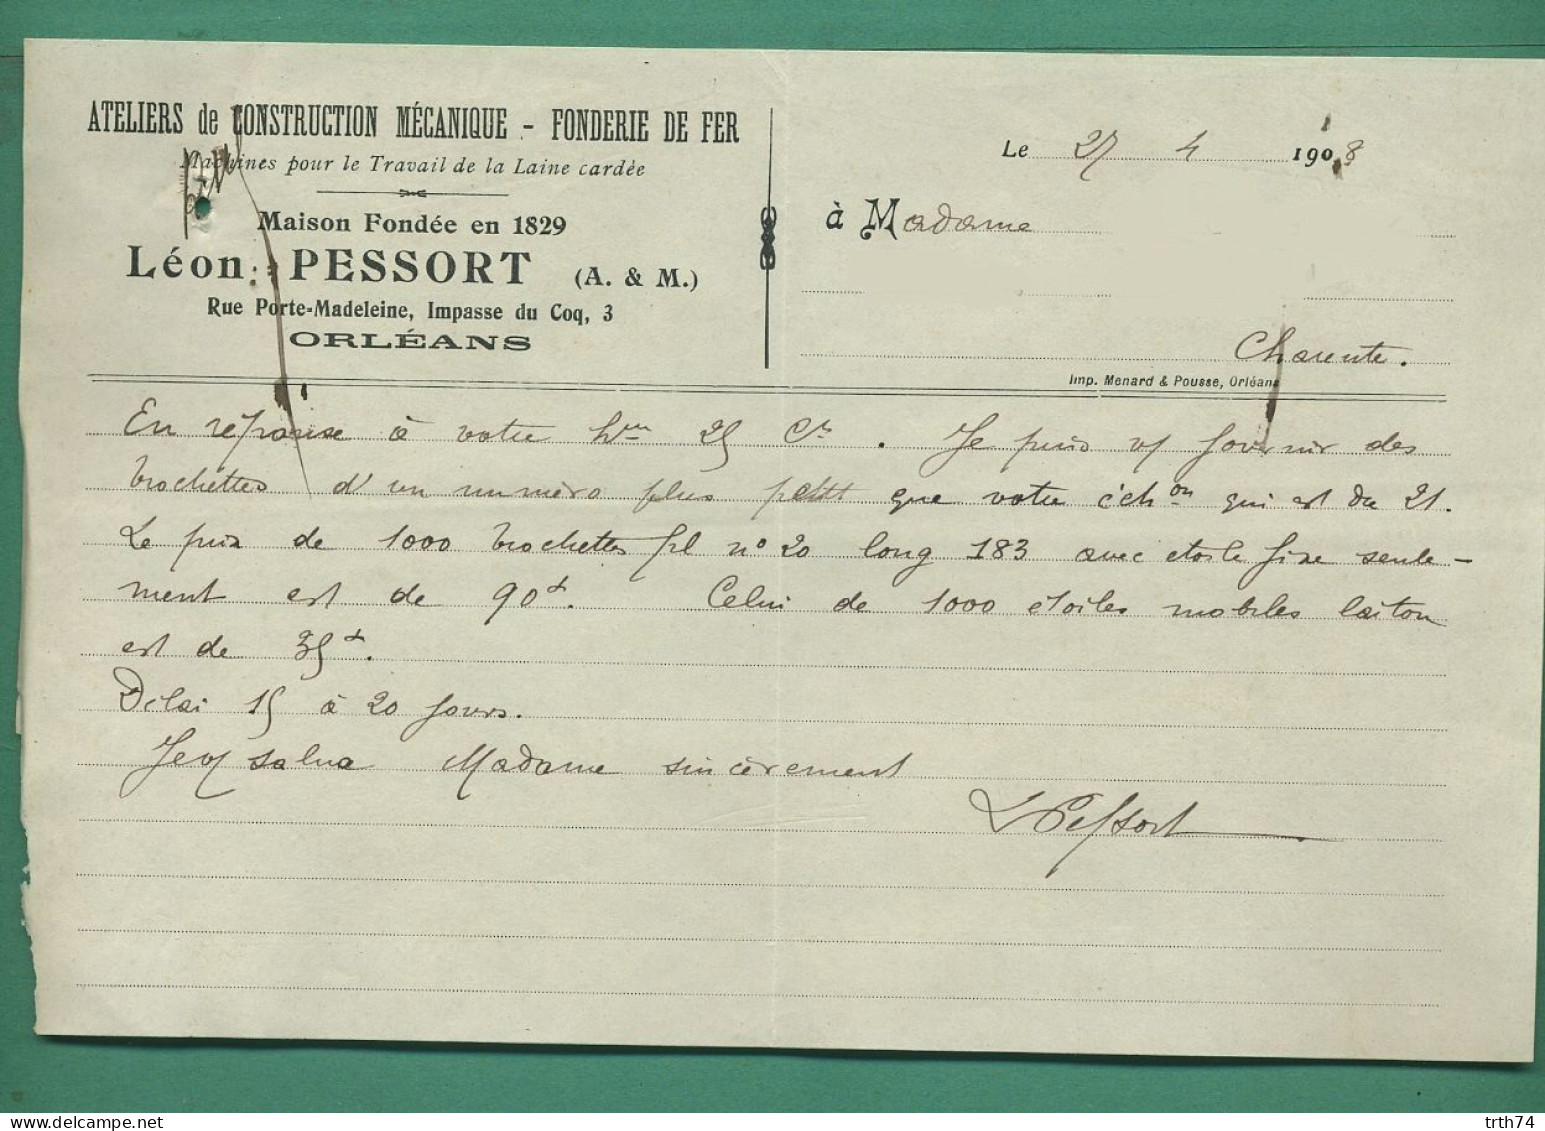 ATELIERS de CONSTRUCTION MÉCANIQUE - FONDERIE DE FER
Machines pour le Travail de la Laine cardée
Maison Fondée en 1829
Léon PESSORT (A. & M.)
Rue Porte-Madeleine, Impasse du Coq, 3
ORLÉANS
Le 27 4 1908
à Madame
Charente.
Imp. Menard & Pousse, Orléans
En réponse à votre h^on 25 C^t. Je puis vs fournir des
brochettes d'un numéro plus petit que votre éch^on qui est du 21.
Le prix de 1000 brochettes fil n° 20 long 183 avec étoile fixe seule-
ment est de 90f. Celui de 1000 étoiles mobiles laiton
est de 35f.
Délai 15 à 20 jours.
Je vs salue Madame sincèrement
L Pessort
trth74